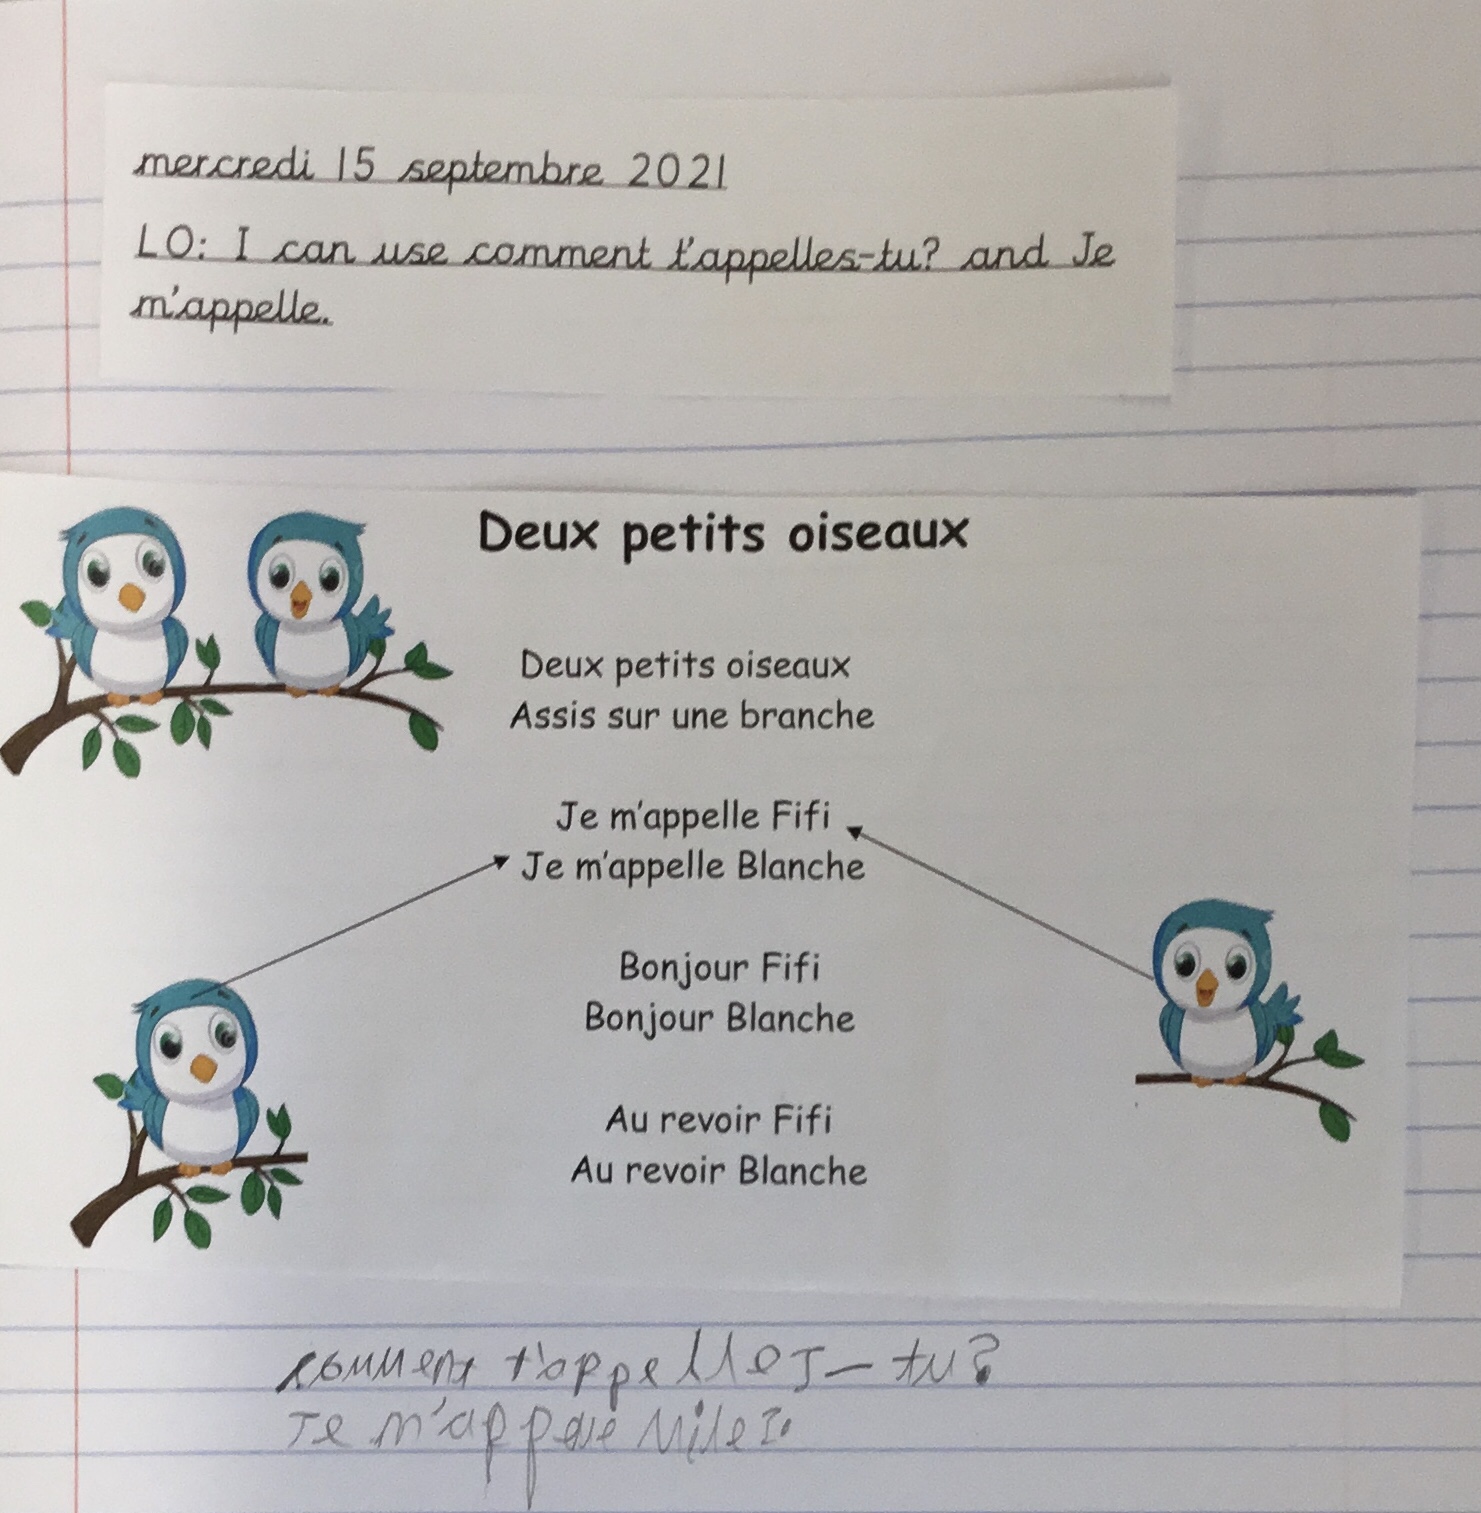 mercredi 15 septembre 2021
LO: I can use comment t'appelles-tu? and Je
m'appelle.
Deux petits oiseaux
Deux petits oiseaux
Assis sur une branche
Je m'appelle Fifi
Je m'appelle Blanche
Bonjour Fifi
Bonjour Blanche
Au revoir Fifi
Au revoir Blanche
comment t'appelles-tu?
Je